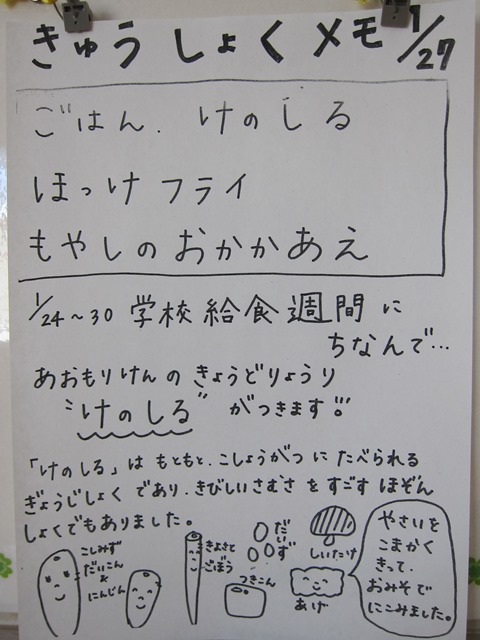 きゅうしょくメモ 1/27
ごはん. けのしる
ほっけフライ
もやしのおかかあえ
1/24~30 学校給食週間に
ちなんで…
あおもりけんのきょうどりょうり
"けのしる"がつきます!!!
「けのしる」はもともと、こしょうがつにたべられる
ぎょうじしょくであり、きびしいさむさをすごすほぞん
しょくでもありました。
こしみず
だいこん&
にんじん
きよさと
ごぼう
だいず
つきこん
しいたけ
あげ
やさいを
こまかく
きって、
おみそで
にこみました。